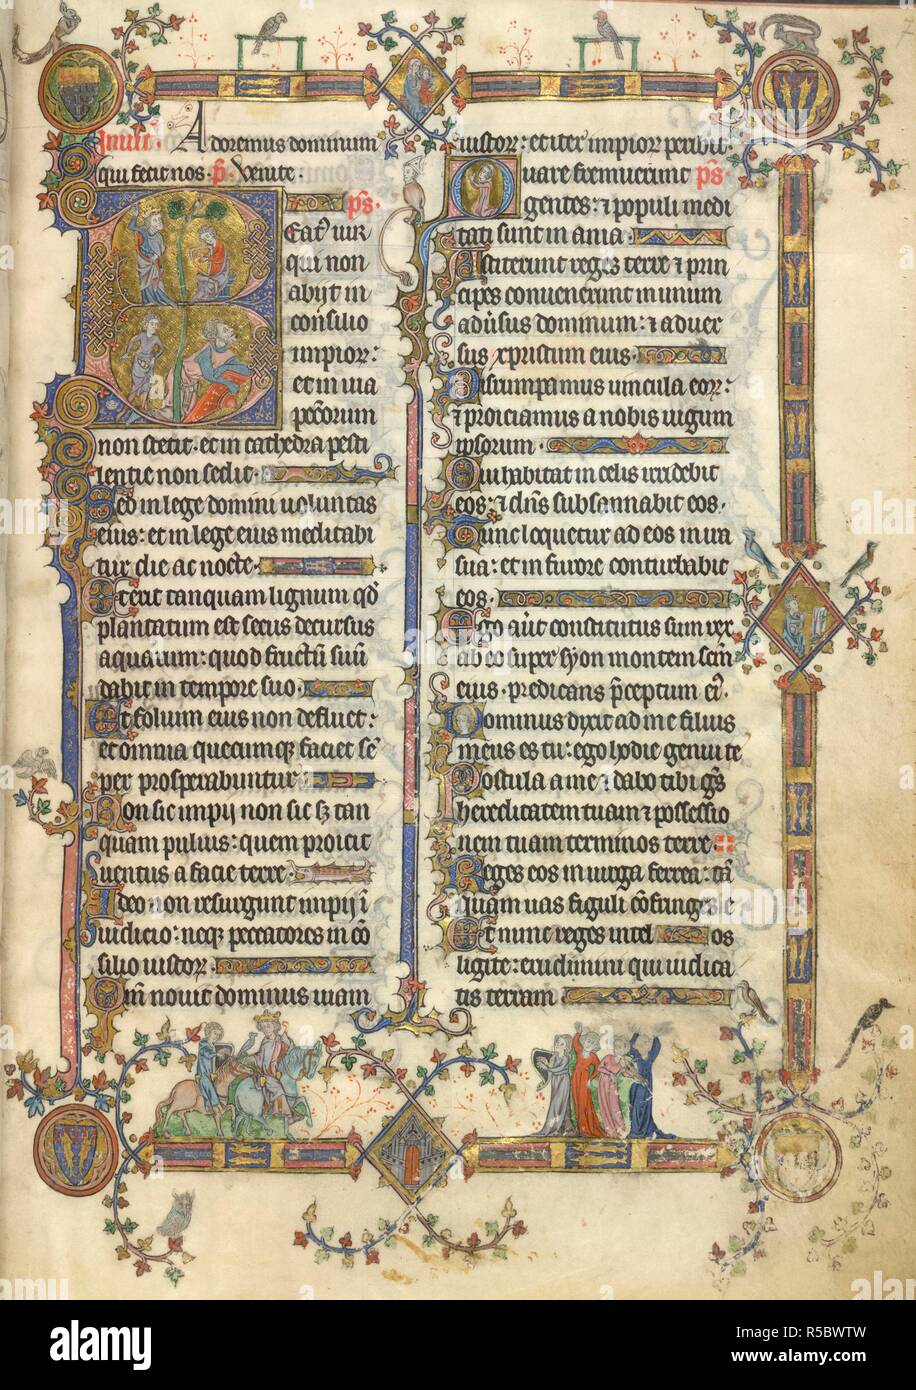 Inuit. Adoremus dominum
qui fecit nos. ps. Venite.
ps.
Beatus uir
qui non
abijt in
consilio
impior:
et in uia
peccorum
non stetit. et in cathedra pesti
lentie non sedit.
Sed in lege domini uoluntas
eius: et in lege eius meditabi
tur die ac nocte.
Et erit tanquam lignum qd
plantatum est secus decursus
aquarum: quod fructum suum
dabit in tempore suo.
Et folium eius non defluet:
et omnia quecumque faciet sem
per prosperabuntur.
Non sic impij non sic sed tan
quam puluis: quem proicit
uentus a facie terre.
Ideo non resurgunt impij in
iudicio: neque peccatores in con
silio iustor.
Qm nouit dominus uiam
iustor: et iter impior peribit.
Quare fremuerunt ps.
gentes: et populi medi
tati sunt inania.
Astiterunt reges terre et prin
cipes conuenerunt in unum
aduersus dominum: et aduer
sus xpristum eius.
Dirumpamus uincula eor:
et proiciamus a nobis iugum
ipsorum.
Qui habitat in celis irridebit
eos: et dns subsannabit eos.
Tunc loquetur ad eos in ira
sua: et in furore conturbabit
eos.
Ego aut constitutus sum rex
ab eo super syon montem scm
eius. predicans preceptum ei.
Dominus dixit ad me filius
meus es tu: ego hodie genui te
Postula a me et dabo tibi gens
hereditatem tuam et possessio
nem tuam terminos terre
Reges eos in uirga ferrea: tam
quam uas figuli confringes e
os
Et nunc reges intel
ligite: erudimini qui iudica
tis terram
alamy
Image ID: R5BWTW
www.alamy.com